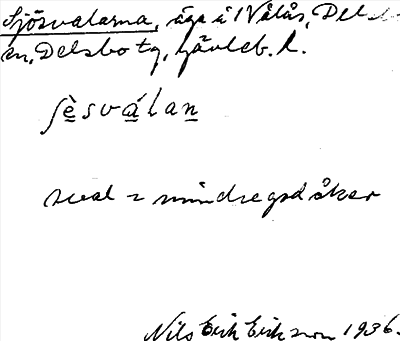 Sjösvalarna, äga i Nålås, Dels-
en, Delsbo tg, Gävleb. l.
ʃè̱svá̱laṉ
sval = mindre god åker
Nils Erik Eriksson 1936.